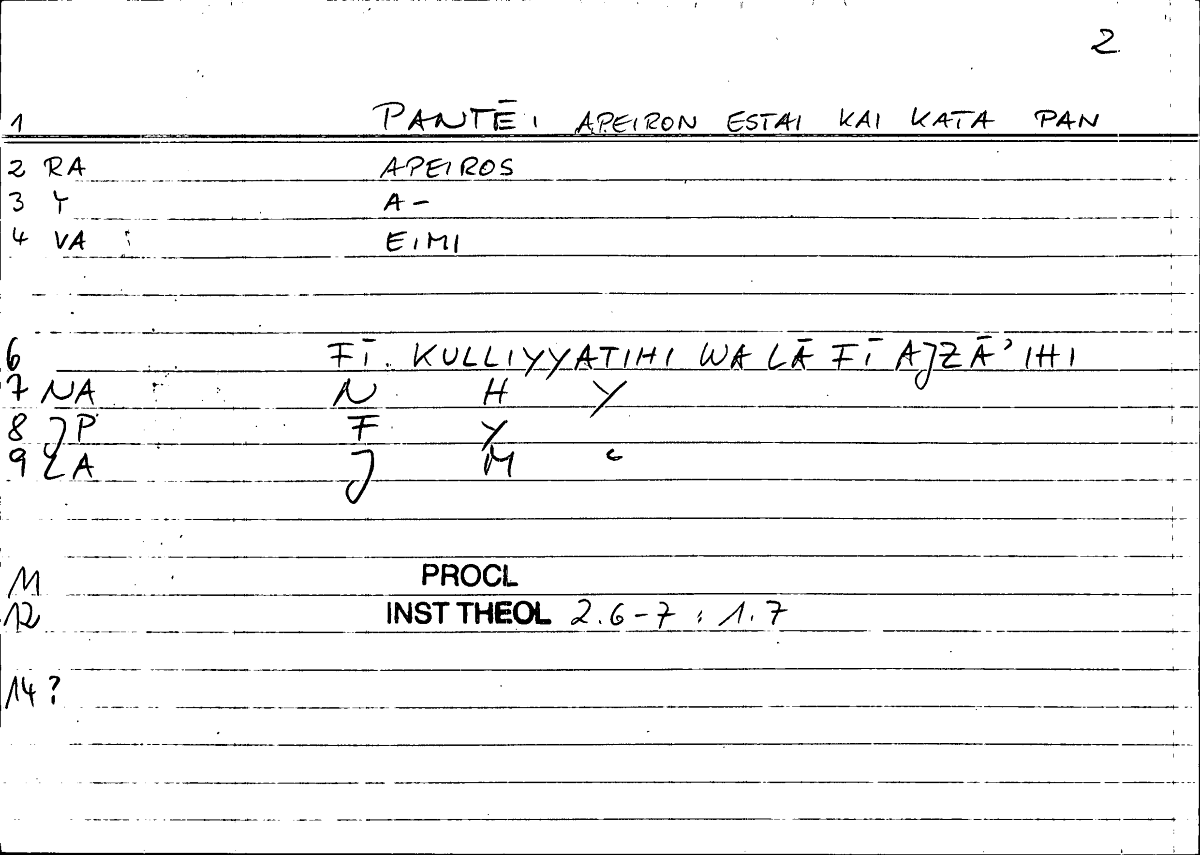 2
1 PANTĒI APEIRON ESTAI KAI KATA PAN
2 RA APEIROS
3 Y A-
4 VA : EIMI
6 FĪ. KULLIYYATIHI WA LĀ FĪ AJZĀʾIHI
7 NA N H Y
8 JP F Y
9 LA J M ʿ
11 PROCL
12 INST THEOL 2.6-7 : 1.7
14 ?